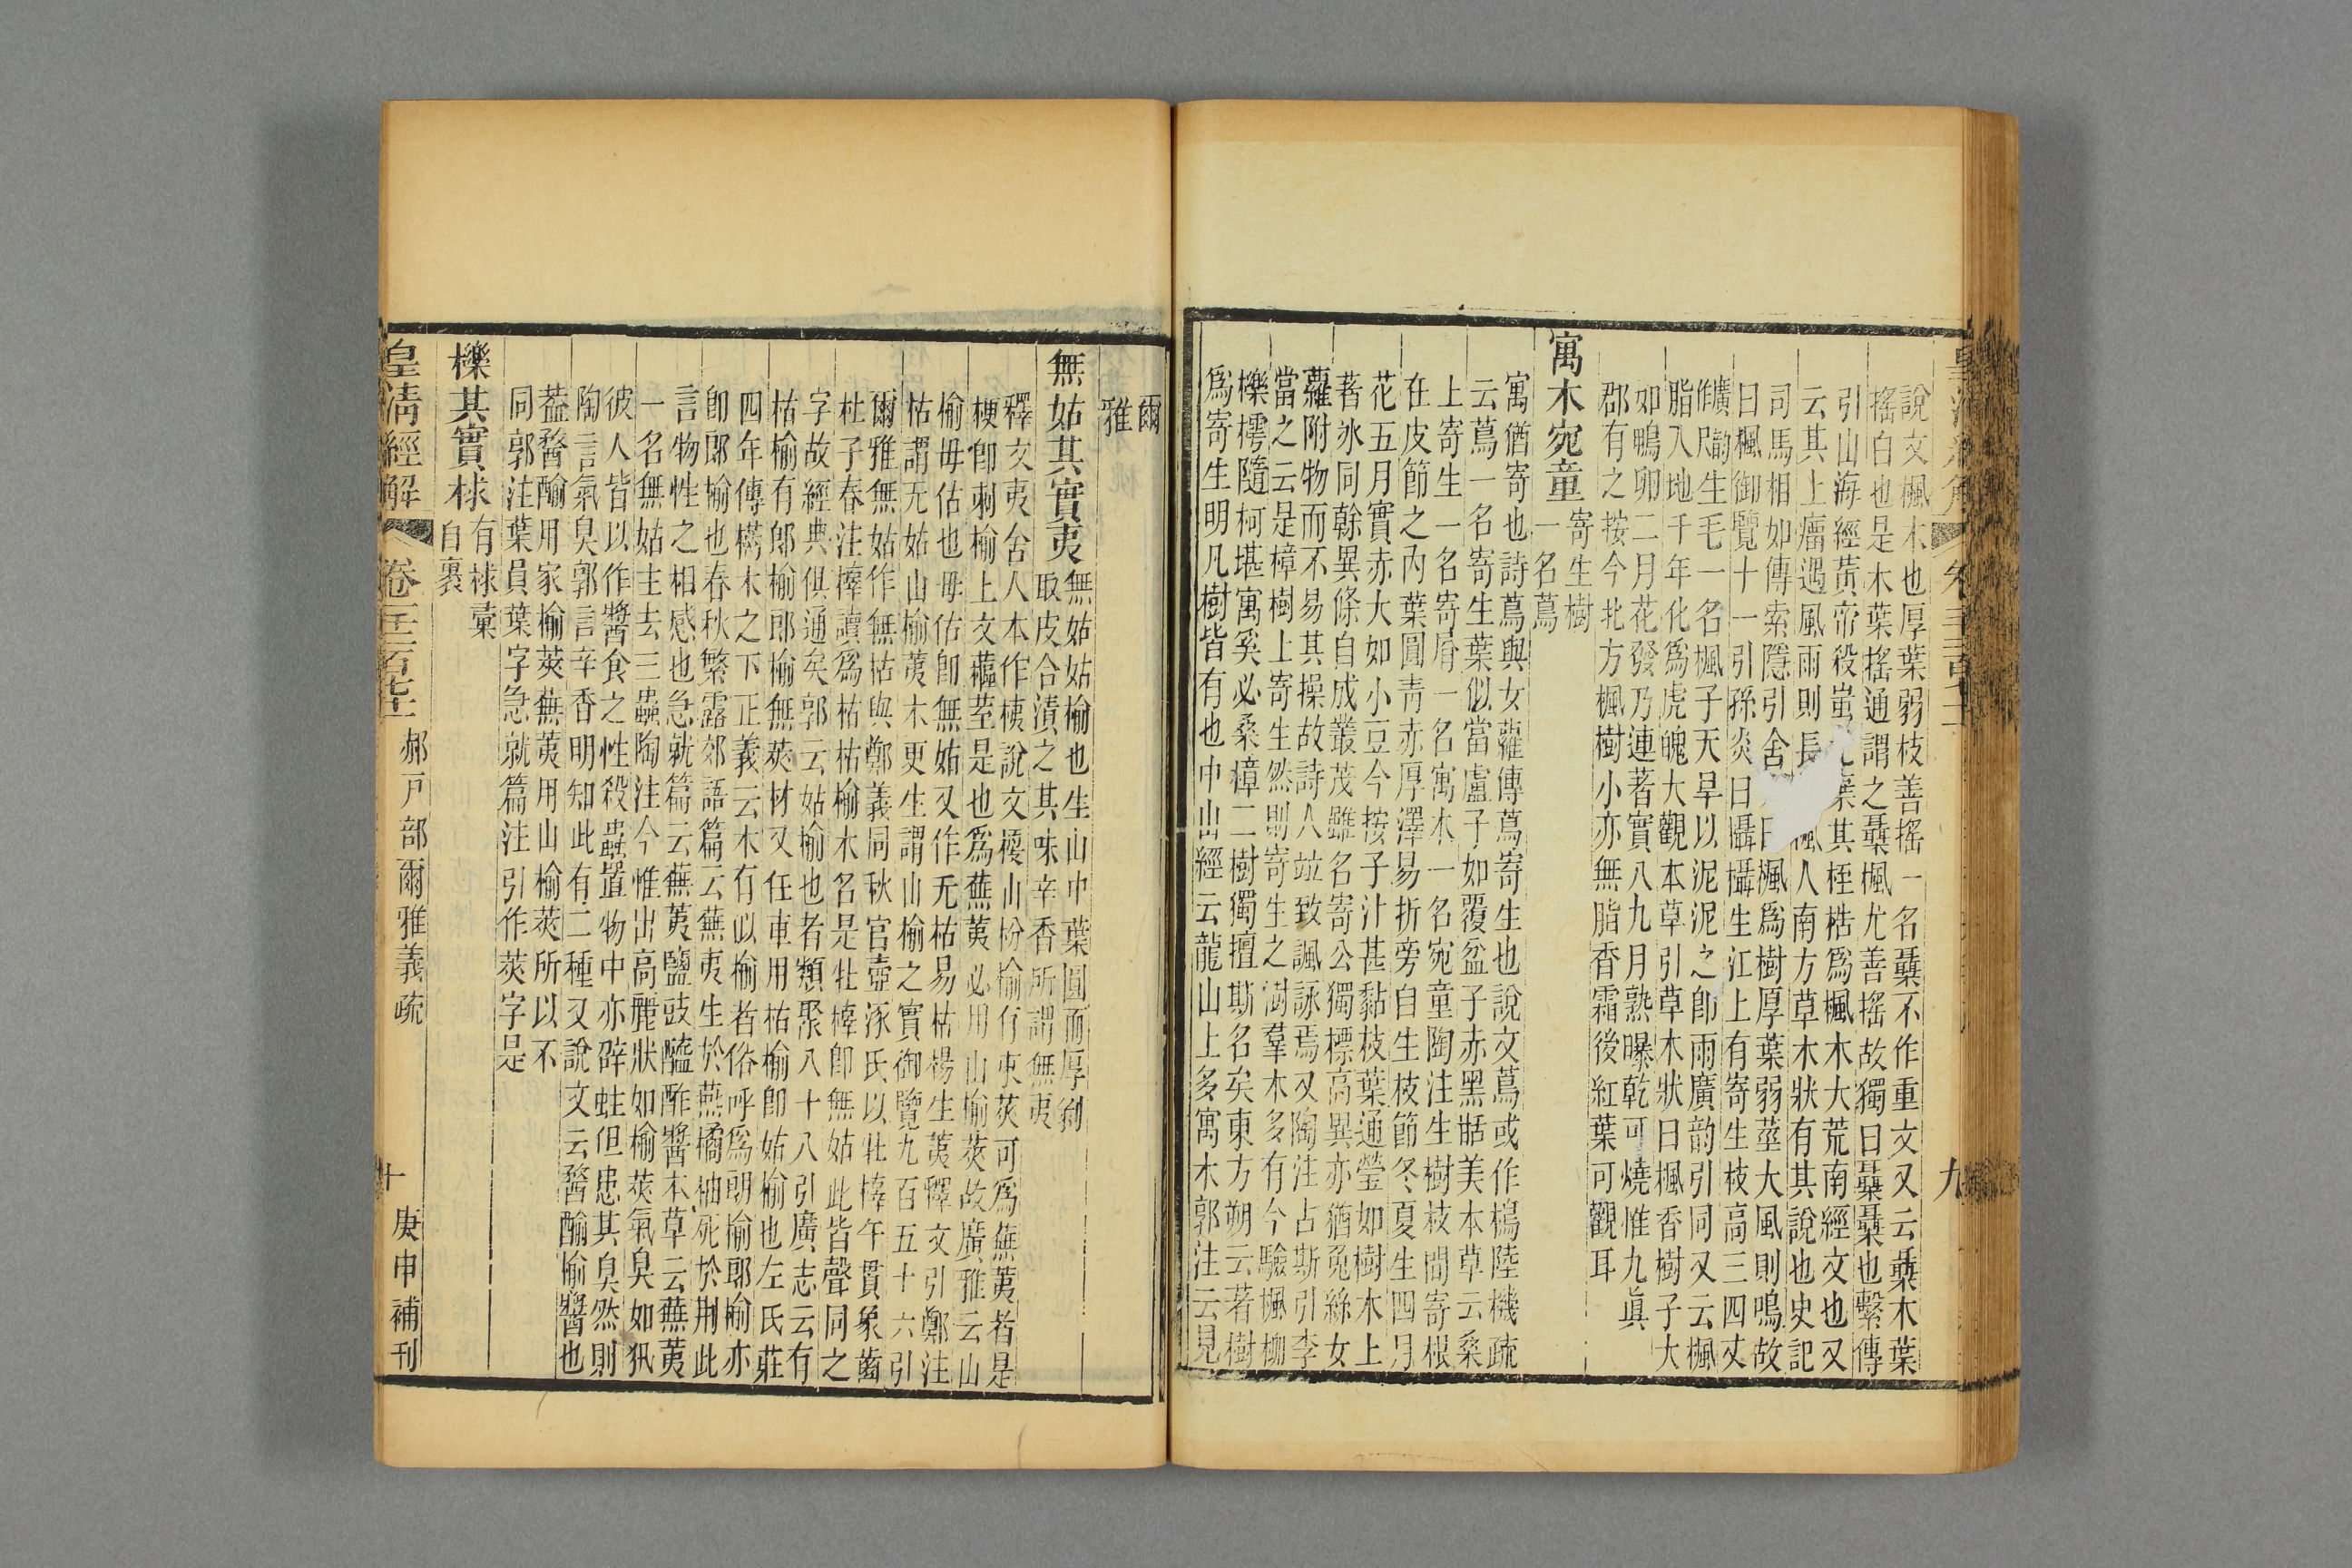 說文楓木也厚葉弱枝善搖一名𣝕不作重文又云𣝕木葉
搖白也是木葉搖通謂之𣝕楓尤善搖故獨曰𣝕𣝕也繫傳
引山海經黃帝殺蚩 葉其桎梏爲楓木大荒南經文也又
云其上癅遇風雨則長 楓人南方草木狀有其說也史記
司馬相如傳索隱引舍 曰楓爲樹厚葉弱莖大風則鳴故
曰楓御覽十一引孫炎曰欇欇生江上有寄生枝高三四丈
生毛一名楓子天旱以泥泥之卽雨廣韵引同又云楓
脂入地千年化爲虎魄大觀本草引草木狀曰楓香樹子大
如鴨卵二月花發乃連著實八九月熟曝乾可燒惟九眞
郡有之按今北方楓樹小亦無脂香霜後紅葉可觀耳
寓木宛童
寄生樹
一名蔦
寓猶寄也詩蔦與女蘿傳蔦寄生也說文蔦或作樢陸機疏
云蔦一名寄生葉似當盧子如覆盆子赤黑甛美本草云桑
上寄生一名寄屑一名寓木一名宛童陶注生樹枝間寄根
在皮節之內葉圓靑赤厚澤易折旁自生枝節冬夏生四月
花五月實赤大如小豆今按子汁甚黏枝葉通瑩如樹木上
著氷同榦異條自成叢茂雖名寄公獨標高異亦猶兔絲女
蘿附物而不易其操故詩人竝致諷詠焉又陶注占斯引李
當之云是樟樹上寄生然則寄生之樹羣木多有今驗楓柳
櫟樗隨柯堪寓奚必桑樟二樹獨擅斯名矣東方朔云著樹
爲寄生明凡樹皆有也中山經云龍山上多寓木郭注云見
九
爾
雅
無姑其實夷
無姑姑榆也生山中葉圓而厚剝
取皮合漬之其味辛香所謂無夷
釋文夷舍人本作桋說文梗山枌榆有朿莢可爲蕪荑者是
梗卽刺榆上文藲荎是也爲蕪荑必用山榆莢故廣雅云山
榆毋估也毋估卽無姑又作无枯易枯楊生荑釋文引鄭注
枯謂无姑山榆荑木更生謂山榆之實御覽九百五十六引
爾雅無姑作無枯與鄭義同秋官壺涿氏以牡橭午貫象齒
杜子春注橭讀爲枯枯榆木名是牡橭卽無姑此皆聲同之
字故經典俱通矣郭云姑榆也者類聚八十八引廣志云有
枯榆有郞榆郞榆無莢材又任車用枯榆卽姑榆也左氏莊
四年傳樠木之下正義云木有似榆者俗呼爲朗榆郞榆亦
卽郞榆也春秋繁露郊語篇云蕪荑生於燕橘柚死於荆此
言物性之相感也急就篇云蕪荑鹽豉醯酢醬本草云蕪荑
一名無姑主去三蟲陶注今惟出高麗狀如榆莢氣臭如犼
彼人皆以作醬食之性殺蟲置物中亦辟蛀但患其臭然則
陶言氣臭郭言辛香明知此有二種又說文云䤅䤅榆醬也
葢䤅䤅用家榆莢蕪荑用山榆莢所以不
同郭注葉員葉字急就篇注引作莢字是
櫟其實梂
有梂彙
自裹
皇淸經解
郝戶部爾雅義疏
十
庚申補刊